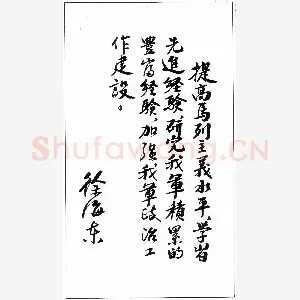 提高马列主义水平,学習
先進経験,研究我軍積累的
豐富経験,加强我軍政治工
作建設。
徐海东
ShufaWang.CN